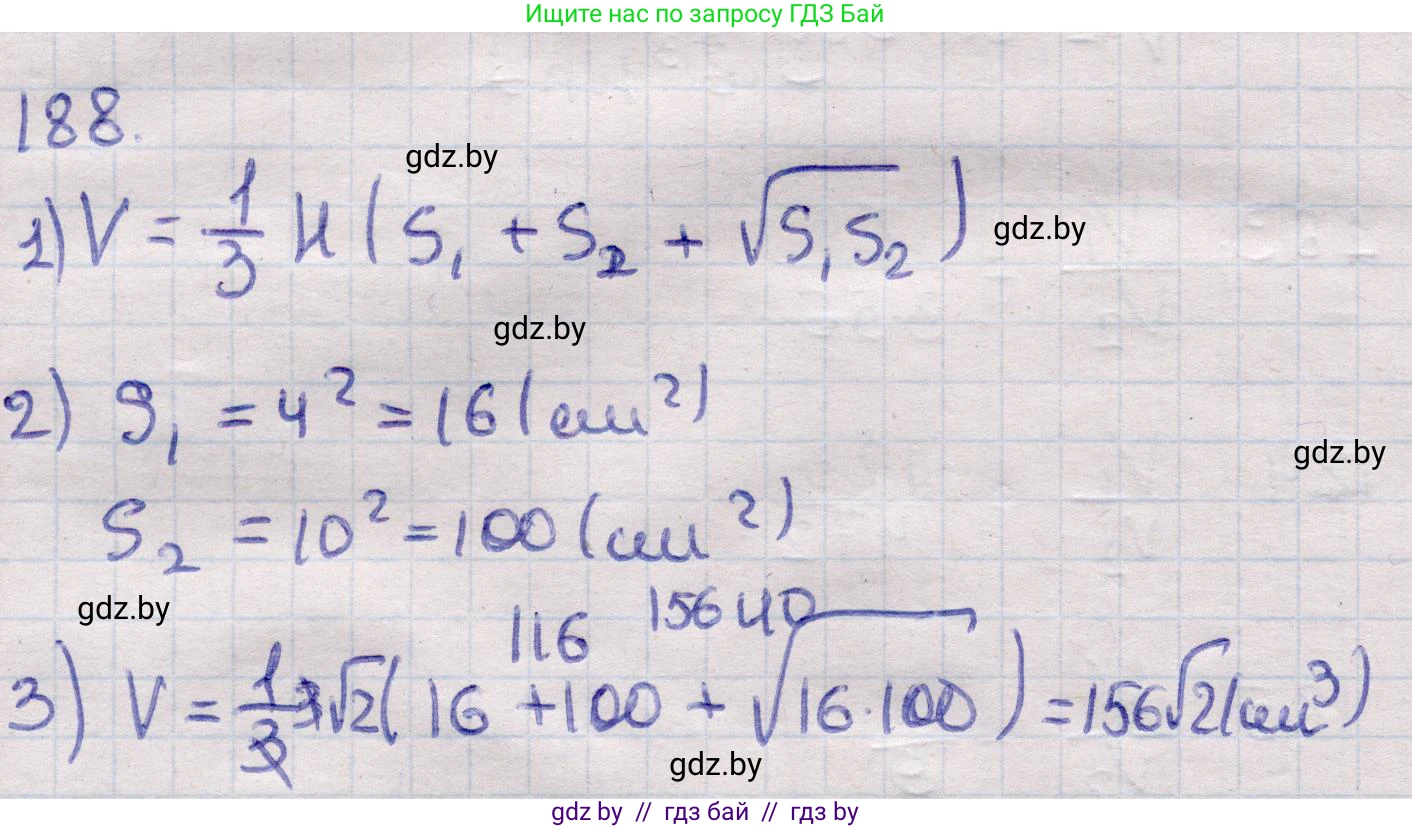 Ищите нас по запросу ГДЗ Бай
188.
gdz.by
1) V = 1/3 H (S₁ + S₂ + √S₁S₂)
gdz.by
gdz.by
2) S₁ = 4² = 16 (см²)
gdz.by
S₂ = 10² = 100 (см²)
gdz.by
116 156 40
3) V = 1/3 3√2 (16 + 100 + √16·100) = 156√2 (см³)
gdz.by
gdz.by // гдз бай // гдз by